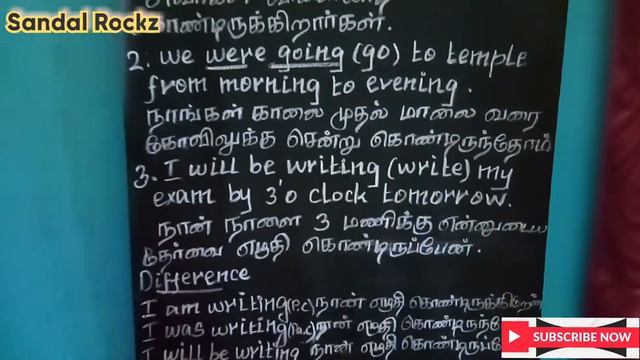 Sandal Rockz
கொண்டிருக்கிறார்கள்.
2. we were going (go) to temple
from morning to evening.
நாங்கள் காலை முதல் மாலை வரை
கோவிலுக்கு சென்று கொண்டிருந்தோம்
3. I will be writing (write) my
exam by 3'o clock tomorrow.
நான் நாளை 3 மணிக்கு என்னுடைய
தேர்வை எழுதி கொண்டிருப்பேன்.
Difference
I am writing (P.C) நான் எழுதி கொண்டிருக்கிறேன்
I was writing (Pa.C) நான் எழுதி
I will be writing நான் எழுதி
SUBSCRIBE NOW